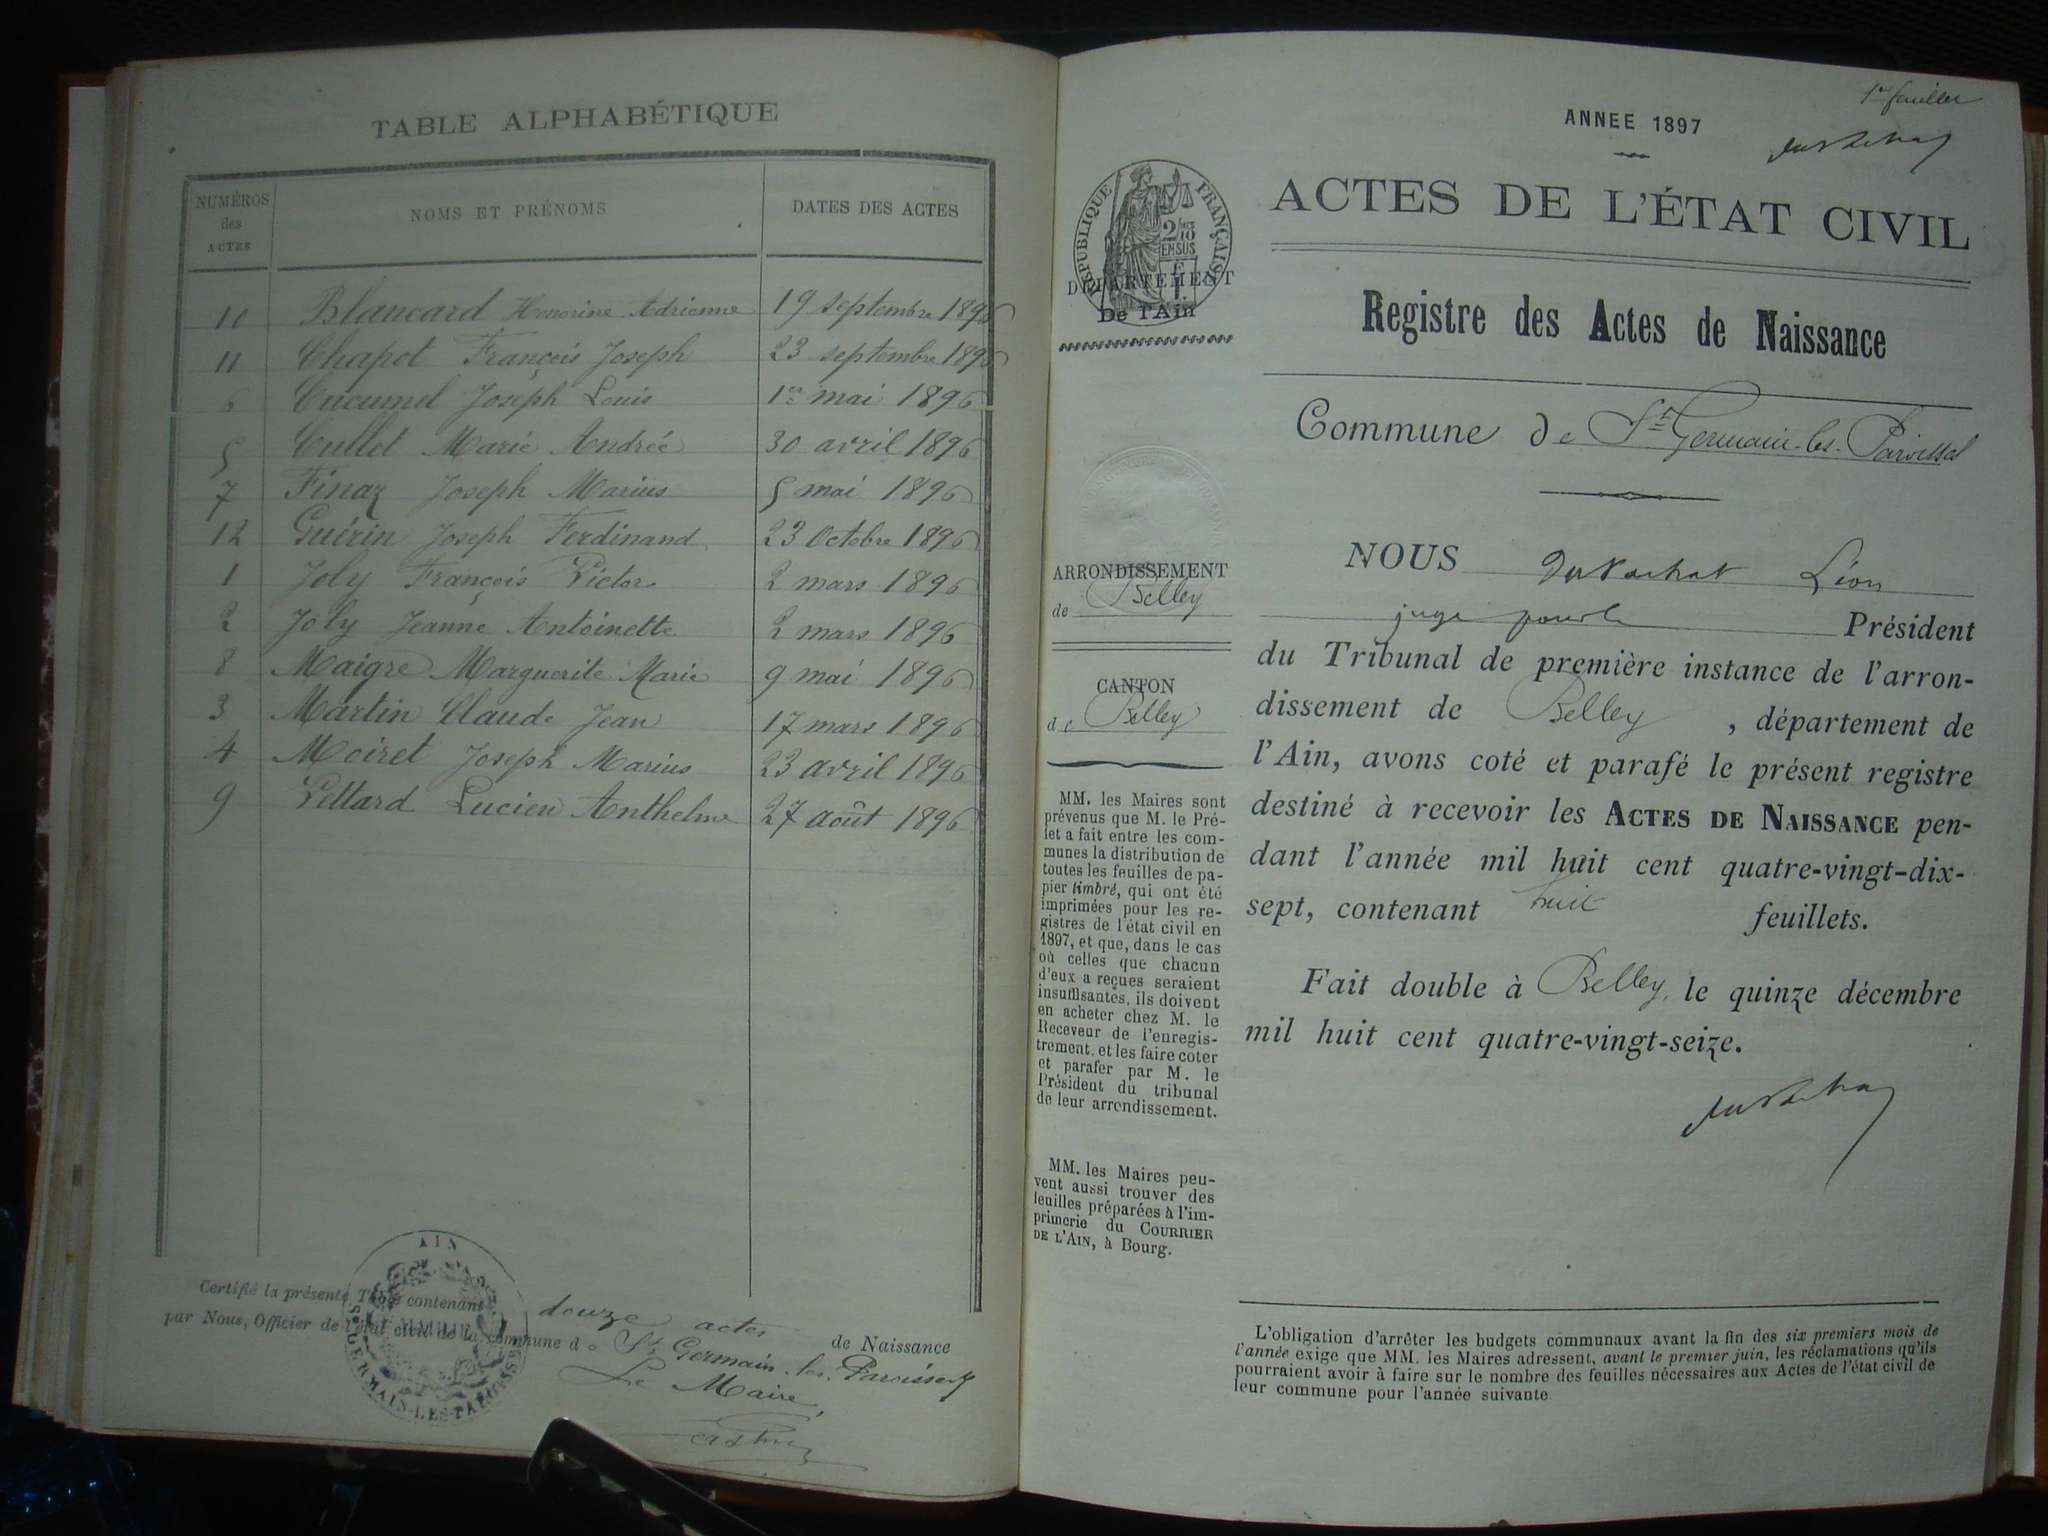 TABLE ALPHABÉTIQUE
NUMÉROS des ACTES
NOMS ET PRÉNOMS
DATES DES ACTES
10 Blancard Honorine Adrienne 19 septembre 1896
11 Chapot François Joseph 23 septembre 1896
6 Cucumel Joseph Louis 1er mai 1896
5 Cullet Marie Andrée 30 avril 1896
7 Finaz Joseph Marius 5 mai 1896
12 Guérin Joseph Ferdinand 23 Octobre 1896
1 Joly François Victor 2 mars 1896
2 Joly Jeanne Antoinette 2 mars 1896
8 Maigre Marguerite Marie 9 mai 1896
3 Martin Claude Jean 17 mars 1896
4 Moiret Joseph Marius 23 avril 1896
9 Vettard Lucien Anthelme 27 août 1896
Certifié la présente Table contenant douze actes de Naissance
par Nous, Officier de l'état civil de la commune de St Germain-les-Paroisses
Le Maire,
AIN
MAIRIE
ST GERMAIN-LES-PAROISSES
1er feuillet
ANNEE 1897
ACTES DE L'ÉTAT CIVIL
RÉPUBLIQUE FRANÇAISE
2/10
EN SUS
DÉPARTEMENT
De l'Ain
Registre des Actes de Naissance
Commune de St Germain-les-Paroisses
ARRONDISSEMENT
de Belley
CANTON
de Belley
MM. les Maires sont
prévenus que M. le Pré-
fet a fait entre les com-
munes la distribution de
toutes les feuilles de pa-
pier timbré, qui ont été
imprimées pour les re-
gistres de l'état civil en
1897, et que, dans le cas
où celles que chacun
d'eux a reçues seraient
insuffisantes, ils doivent
en acheter chez M. le
Receveur de l'enregis-
trement, et les faire coter
et parafer par M. le
Président du tribunal
de leur arrondissement.
MM. les Maires peu-
vent aussi trouver des
feuilles préparées à l'im-
primerie du COURRIER
DE L'AIN, à Bourg.
NOUS Léon
juge pour le Président
du Tribunal de première instance de l'arron-
dissement de Belley, département de
l'Ain, avons coté et parafé le présent registre
destiné à recevoir les ACTES DE NAISSANCE pen-
dant l'année mil huit cent quatre-vingt-dix-
sept, contenant huit feuillets.
Fait double à Belley, le quinze décembre
mil huit cent quatre-vingt-seize.
L'obligation d'arrêter les budgets communaux avant la fin des six premiers mois de
l'année exige que MM. les Maires adressent, avant le premier juin, les réclamations qu'ils
pourraient avoir à faire sur le nombre des feuilles nécessaires aux Actes de l'état civil de
leur commune pour l'année suivante